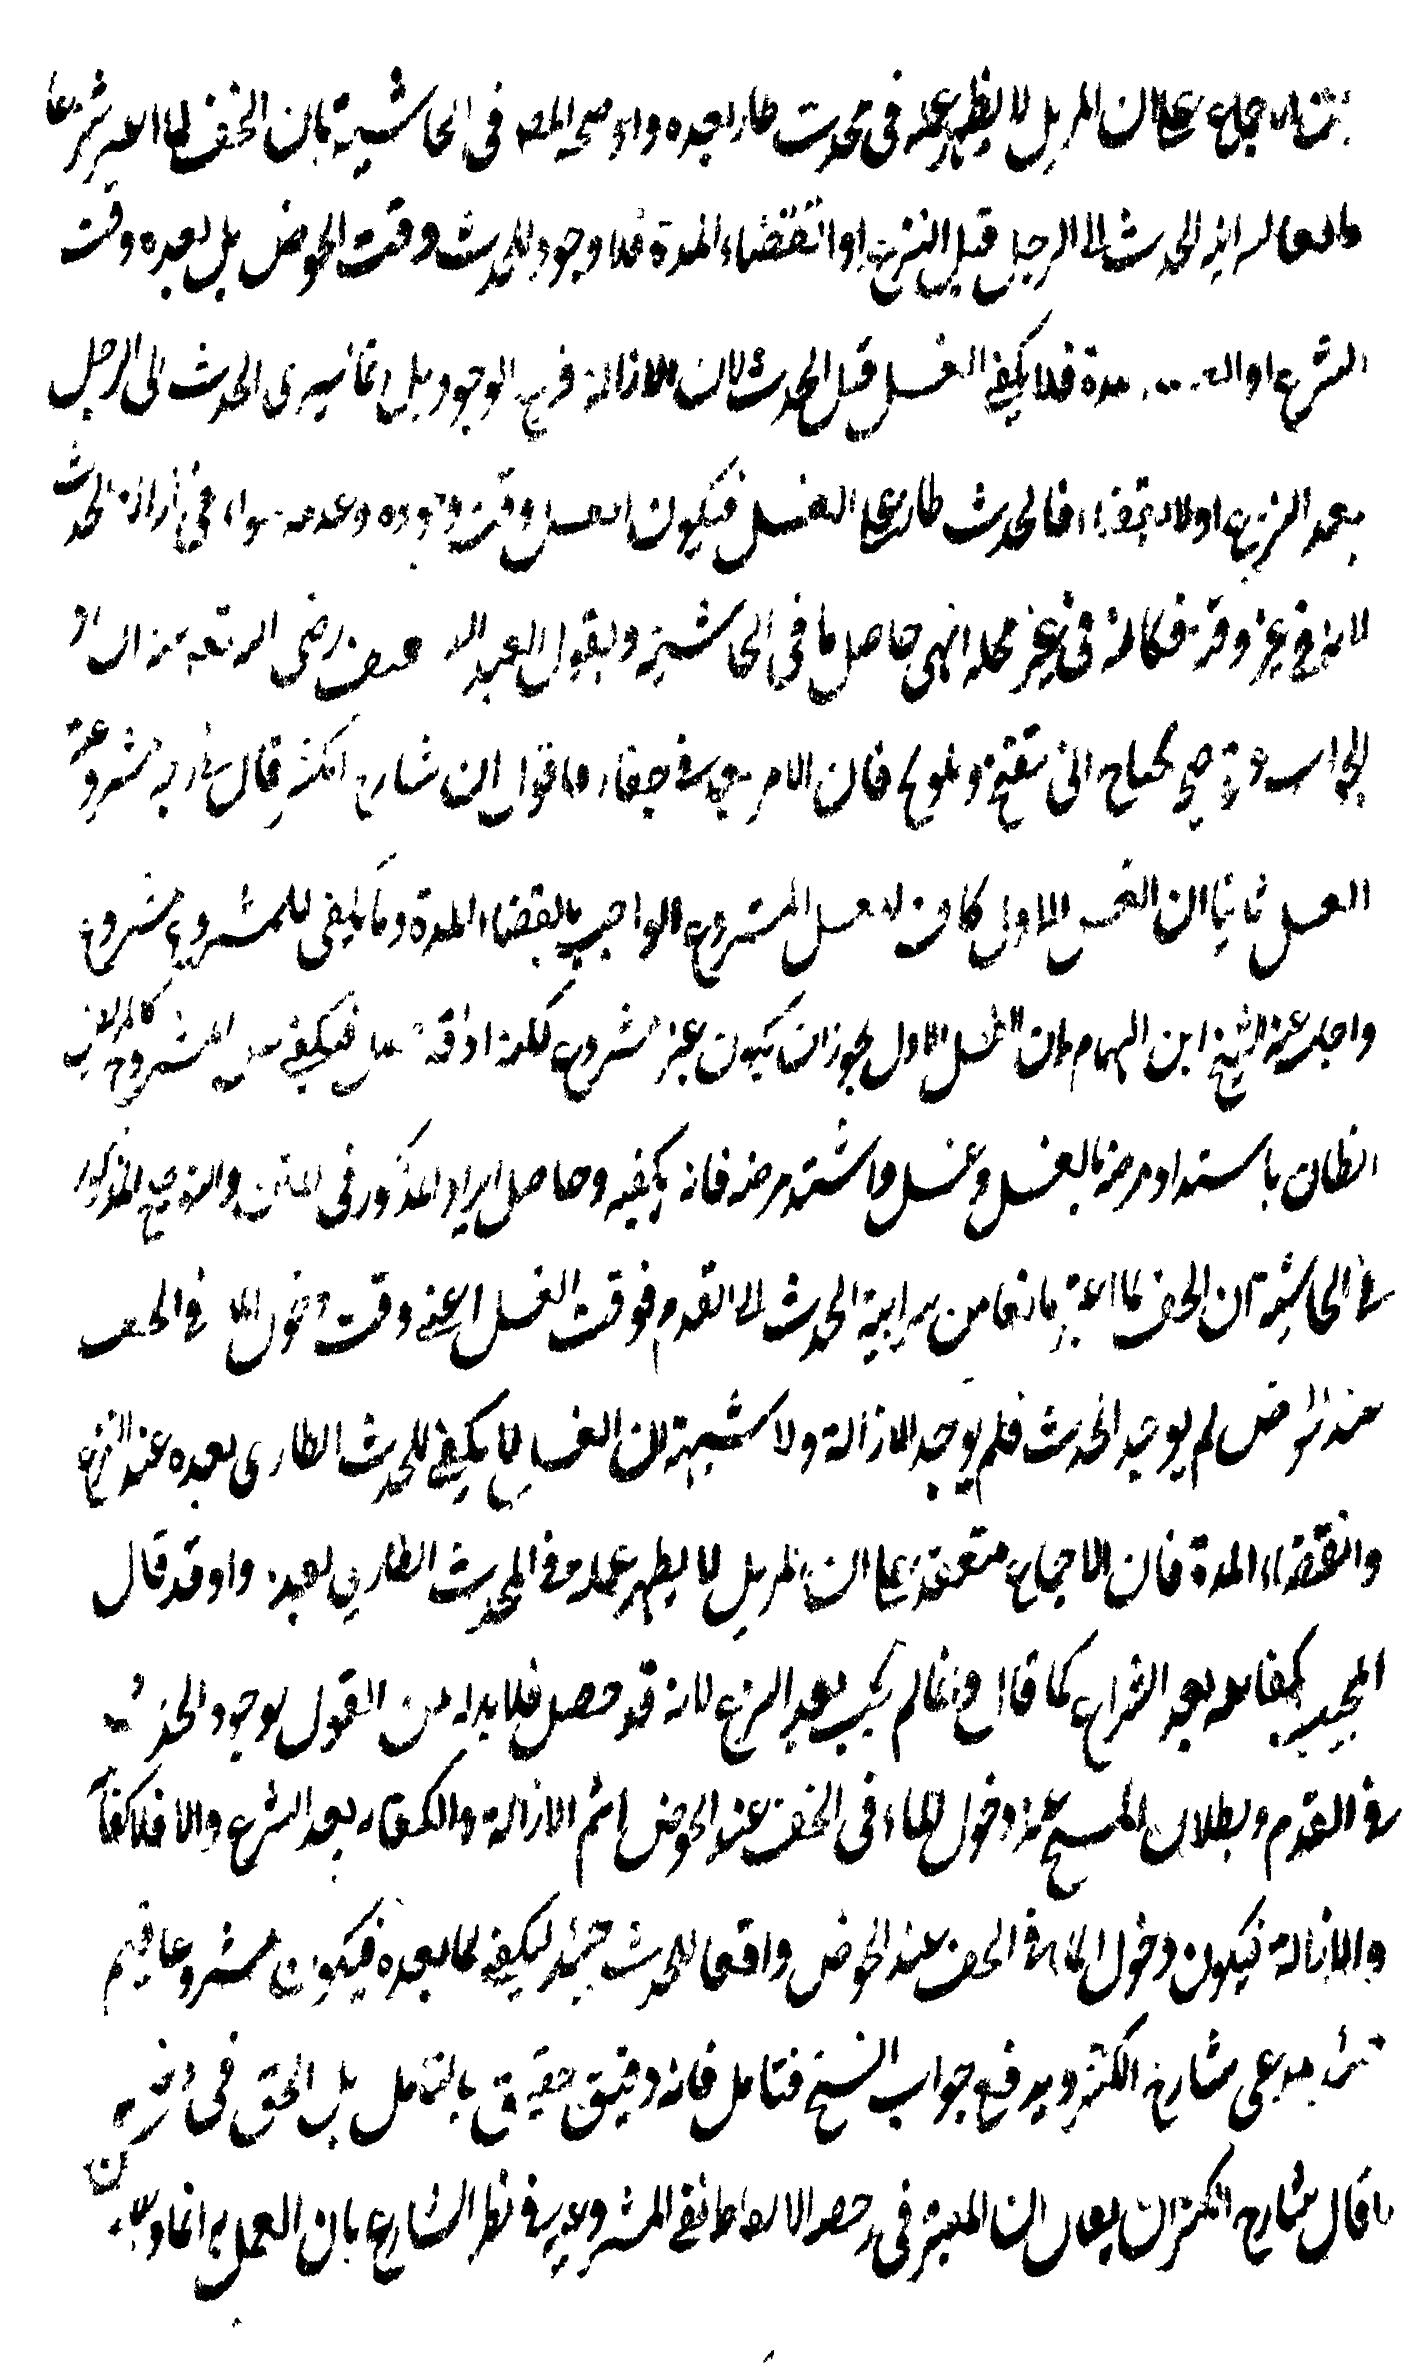 الاجماع على ان المزيل لا يظهر عمله في حدث طار بعده واوضحه المصـ في الحاشية بان الخف لما اعتبر شرعا
مانعا سراية الحدث الى الرجل قبل النزع او انقضاء المدة فلا وجود للحدث وقت الخوض بل بعده وقت
النزع او المدة فلا يكفي الغسل قبل الحدث لان الازالة فرع الوجود بل انما يسرى الحدث الى الرجل
بعد النزع او الانقضاء فالحدث طار على الغسل فيكون الغسل وقت وجوده وعدمه سواء في ازالة الحدث
لانه في غير وقته فكانه في غير محله انتهى حاصل ما في الحاشية ويقول العبد الضعيف رضى الله تعه عنه
الجواب توضيح يحتاج الى تنقيح وتلويح فان الامر بعد في خفاء فاقول ان شارح الكنز قال مشروعية
الغسل ثانيا ان الغسل الاول كاف للغسل المشروع الواجب بانقضاء المدة وما يكفى للمشروع مشروع
واجاب عنه الشيخ ابن الهمام بان الغسل الاول يجوز ان يكون غير مشروع لكنه فيكفي عن المشروع كالمريض
الظان باشتداد مرضه بالغسل وغسل واشتد مرضه فانه يكفيه وحاصل ايراد المذكور في المتن والتوضيح المذكور
في الحاشية ان الخف لما اعتبر مانعا من سراية الحدث الى القدم فوقت الغسل اعني وقت دخول الماء في الخف
عند الخوض لم يوجد الحدث فلم يوجد الازالة ولا شبهة ان الغسل لا يكفي للحدث الطارى بعده عند النزع
وانقضاء المدة فان الاجماع منعقد على ان المزيل لا يظهر عمله في الحدث الطاري بعده واو قد قال
المجيب كفايته بعد النزاع كما قال وانما لم يجب بعد النزع لانه قد حصل فلا بد له من القول بوجود الحدث
في القدم وبطلان المسح عند دخول الماء في الخف عند الخوض ليتم الازالة والكفاية بعد النزع والا فلا كفاية
والازالة فيكون دخول الماء في الخف عند الخوض واقعا للحدث حينئذ ليكفي لما بعده فيكون مشروعا فيتم
مدعى شارح الكنز ويدفع جواب الشيخ فتامل فانه دقيق حقيق بالتامل بل الحق في
ما قال شارح الكنز ان يقال ان المعتبر في رخصة الاسقاط نفي المشروعية في نظر الشارع بان العمل به انما